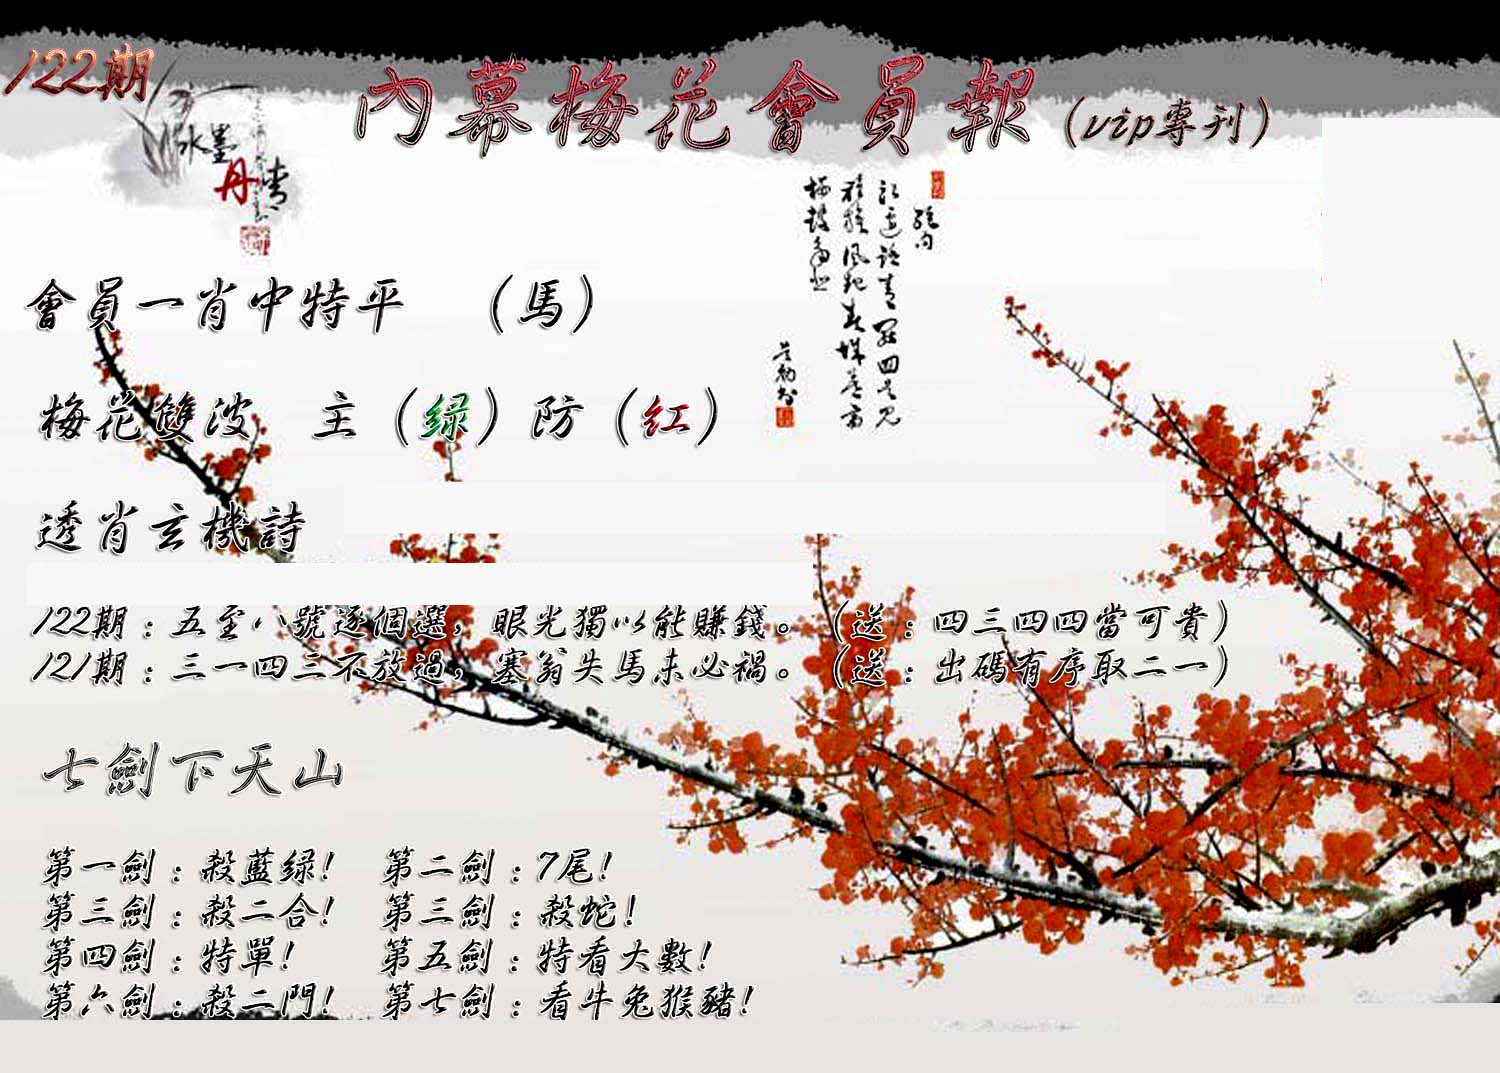 122期
內幕梅花會員報(vip專刊)
水墨
丹青
會員一肖中特平 (馬)
梅花雙波 主(绿)防(红)
透肖玄機詩
122期:五至八號逐個選,眼光獨以能賺錢。(送:四三四四當可貴)
121期:三一四三不放過,塞翁失馬未必禍。(送:出碼有序取二一)
七劍下天山
第一劍:殺藍绿! 第二劍:7尾!
第三劍:殺二合! 第三劍:殺蛇!
第四劍:特單! 第五劍:特看大數!
第六劍:殺二門! 第七劍:看牛兔猴豬!